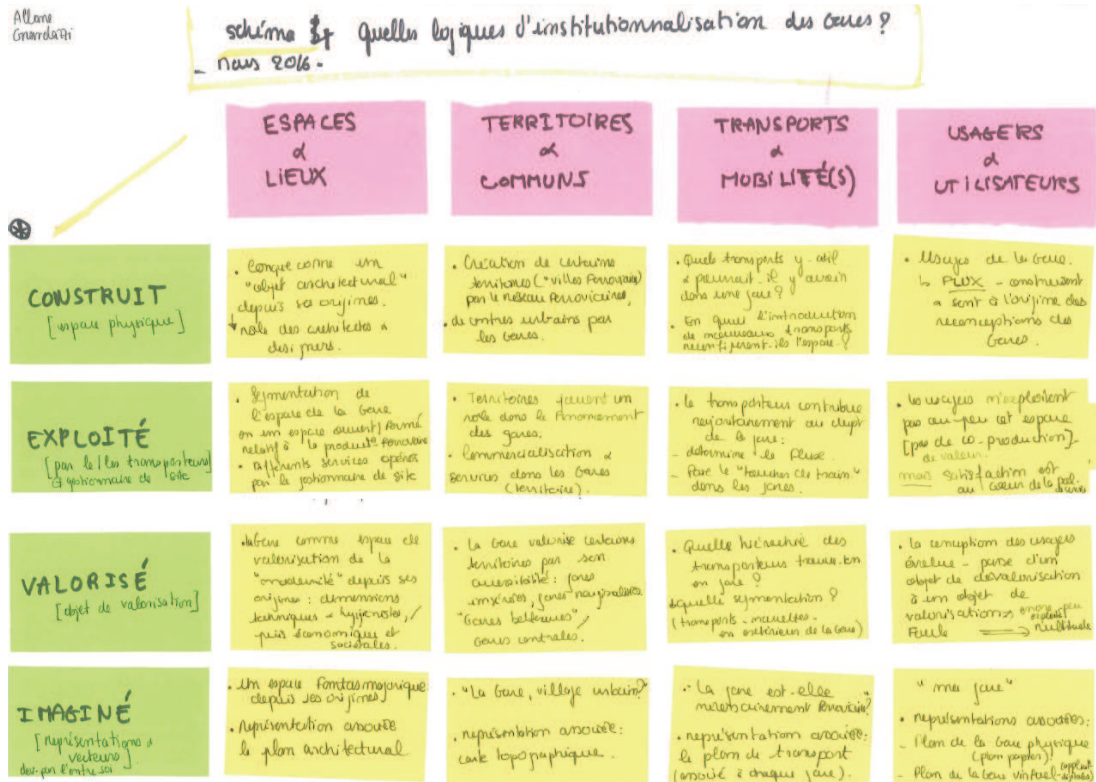 Allane
schéma quelles logiques d'institutionnalisation des Gares ?
- mars 2016 -
ESPACES
&
LIEUX
TERRITOIRES
&
COMMUNS
TRANSPORTS
&
MOBILITÉ(S)
USAGERS
&
UTILISATEURS
CONSTRUIT
[espace physique]
• Conçue comme un
"objet architectural"
depuis ses origines.
rôle des architectes &
designers.
• Création de certains
territoires ("villes ferroviaires")
par le réseau ferroviaire,
• de centres urbains par
les Gares.
• Quels transports y-a-t-il
& pourrait-il y avoir
dans une gare ?
• En quoi l'introduction
de nouveaux transports
reconfigurent-ils l'espace ?
• Usages de la Gare.
↳ FLUX - construisent
& sont à l'origine des
reconceptions des
Gares.
EXPLOITÉ
[par le/les transporteurs]
& gestionnaire de site
• Segmentation de
l'espace de la Gare
en un espace ouvert/fermé
relatif à la product° ferroviaire
• Différents services opérés
par le gestionnaire de site
• Territoires jouent un
rôle dans le financement
des gares.
• Commercialisation &
services dans les Gares
(territoire).
• Le transporteur contribue
majoritairement au dvpt
de la gare :
- détermine le flux.
- Paie le "toucher de train"
dans les gares.
• Les usagers n'exploitent
pas ou-peu cet espace
[pas de co-production]-
de valeur.
mais satisfaction est
au cœur de la
VALORISÉ
[objet de valorisation]
• La Gare comme espace de
valorisation de la
"modernité" depuis ses
origines : dimensions
techniques - hygiénistes, /
puis économiques et
sociétales.
• La Gare valorise certains
territoires par son
accessibilité : gares
"Gares betteraves" /
Gares centrales.
• Quelle hiérarchie des
transporteurs trouve-t-on
en gare ?
& quelle segmentation ?
(transports - navettes -
en extérieur de la Gare)
• La conception des usagers
évolue - passe d'un
objet de dévalorisation
à un objet de
valorisation encore peu exploité
Foule ⟹ multitude
IMAGINÉ
[représentations &
vecteurs]
dev-par l'entre soi
• Un espace fantasmagorique
depuis ses origines
• représentation associée
le plan architectural
• "La Gare, village urbain?"
• représentation associée :
carte topographique.
• "La gare est-elle
nécessairement ferroviaire?"
• représentation associée :
le plan de transport
(associé à chaque gare).
"ma gare"
• représentations associées :
- Plan de la Gare physique
(plan papier)
- Plan de la Gare virtuel